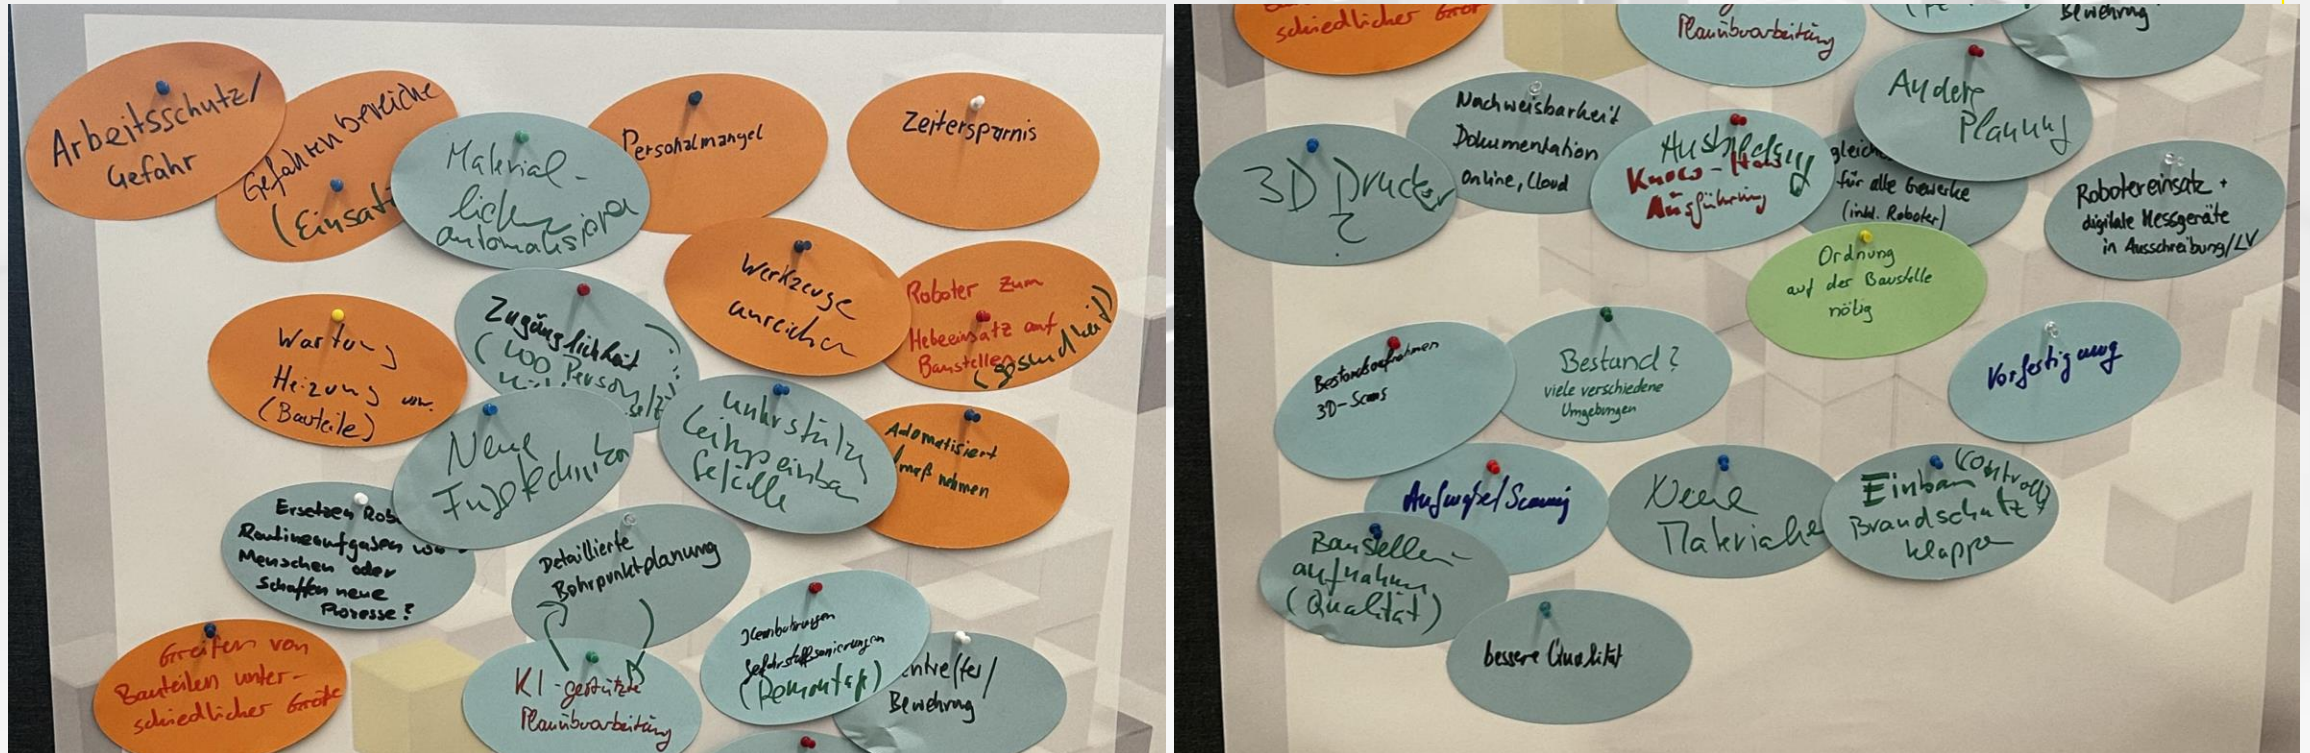 Arbeitsschutz/
Gefahr
Gefahrenbereiche
(Einsatz
Material-
automatisiert
Personalmangel
Zeitersparnis
Werkzeuge
anreichen
Roboter zum
Hebeeinsatz auf
Baustellen
(gesundheit)
Wartung
Heizung usw.
(Bauteile)
Zugänglichkeit
(wo Person
Neue
Fügetechniken
unterstütze
Gefälle
Automatisiert
maß nehmen
Ersetzen Rob
Routineaufgaben von
Menschen oder
Schaffen neue
Prozesse?
Detaillierte
Bohrpunktplanung
KI-gestützte
Planüberarbeitung
Kernbohrungen
Gefahrstoffsanierungen
(Demontage)
Bewehrung
Greifen von
Bauteilen unter-
schiedlicher Größe
schiedlicher Größ
Planüberarbeitung
Bewehrung
3D Drucker
?
Nachweisbarkeit
Dokumentation
Online, Cloud
Ausbildung
Know-How
Ausführung
gleiche
für alle Gewerke
(inkl. Roboter)
Andere
Planung
Robotereinsatz +
digitale Messgeräte
in Ausschreibung/LV
Ordnung
auf der Baustelle
nötig
Bestandsaufnahmen
3D-Scans
Bestand?
viele verschiedene
Umgebungen
Vorfertigung
Neue
Materialien
Einbau Kontrolle
Brandschutz
klappen
Baustellen-
aufnahme
(Qualität)
bessere Qualität